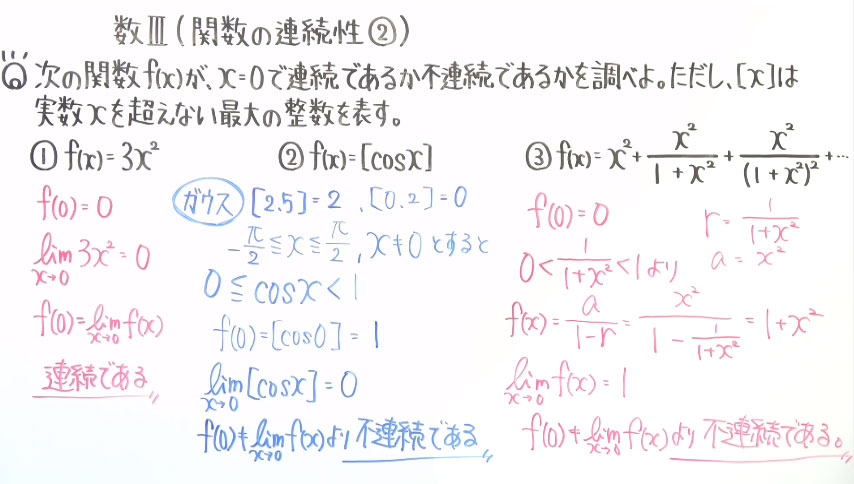 数Ⅲ(関数の連続性②)
Q 次の関数f(x)が、x=0で連続であるか不連続であるかを調べよ。ただし、[x]は
実数xを超えない最大の整数を表す。
① f(x)=3x²
f(0)=0
lim_{x→0} 3x²=0
f(0)=lim_{x→0} f(x)
連続である
② f(x)=[cosx]
ガウス [2.5]=2、[0.2]=0
-π/2≦x≦π/2、x≠0とすると
0≦cosx<1
f(0)=[cos0]=1
lim_{x→0} [cosx]=0
f(0)≠lim_{x→0} f(x)より不連続である
③ f(x)=x²+x²/(1+x²)+x²/(1+x²)²+…
f(0)=0 r=1/(1+x²)
0<1/(1+x²)<1より a=x²
f(x)=a/(1-r)=x²/(1-1/(1+x²))=1+x²
lim_{x→0} f(x)=1
f(0)≠lim_{x→0} f(x)より不連続である。